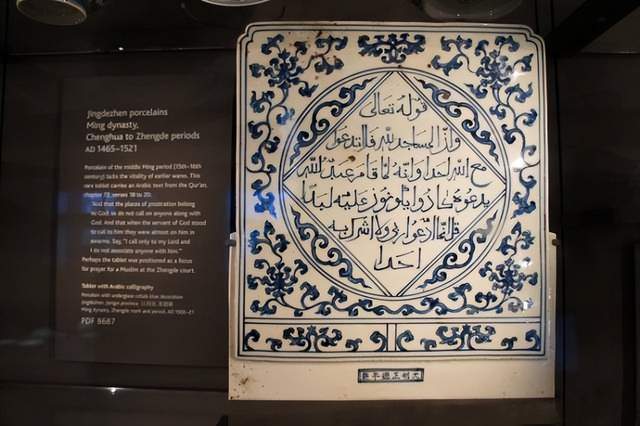 Jingdezhen porcelains
Ming dynasty,
Chenghua to Zhengde periods
AD 1465–1521
Porcelain of the middle Ming period (15th–16th
century) lacks the vitality of earlier wares. This
rare tablet carries an Arabic text from the Qur'an,
chapter 72, verses 18 to 20:
'And that the places of prostration belong
to God; so do not call on anyone along with
God. And that when the servant of God stood
to call to him they were almost on him in
swarms. Say, "I call only to my Lord and
I do not associate anyone with him."'
Perhaps the tablet was positioned as a focus
for prayer for a Muslim at the Zhengde court.
Tablet with Arabic calligraphy
Porcelain with underglaze cobalt-blue decoration
Jingdezhen, Jiangxi province 江西省, 景德鎮
Ming dynasty, Zhengde mark and period, AD 1506–21
PDF B687
قوله تعالى
وان المساجد لله فلا تدعوا
مع الله احدا وانه لما قام عبد الله
يدعوه كادوا يكونون عليه لبدا
قل انما ادعوا ربي ولا اشرك به
احدا
大明正德年製